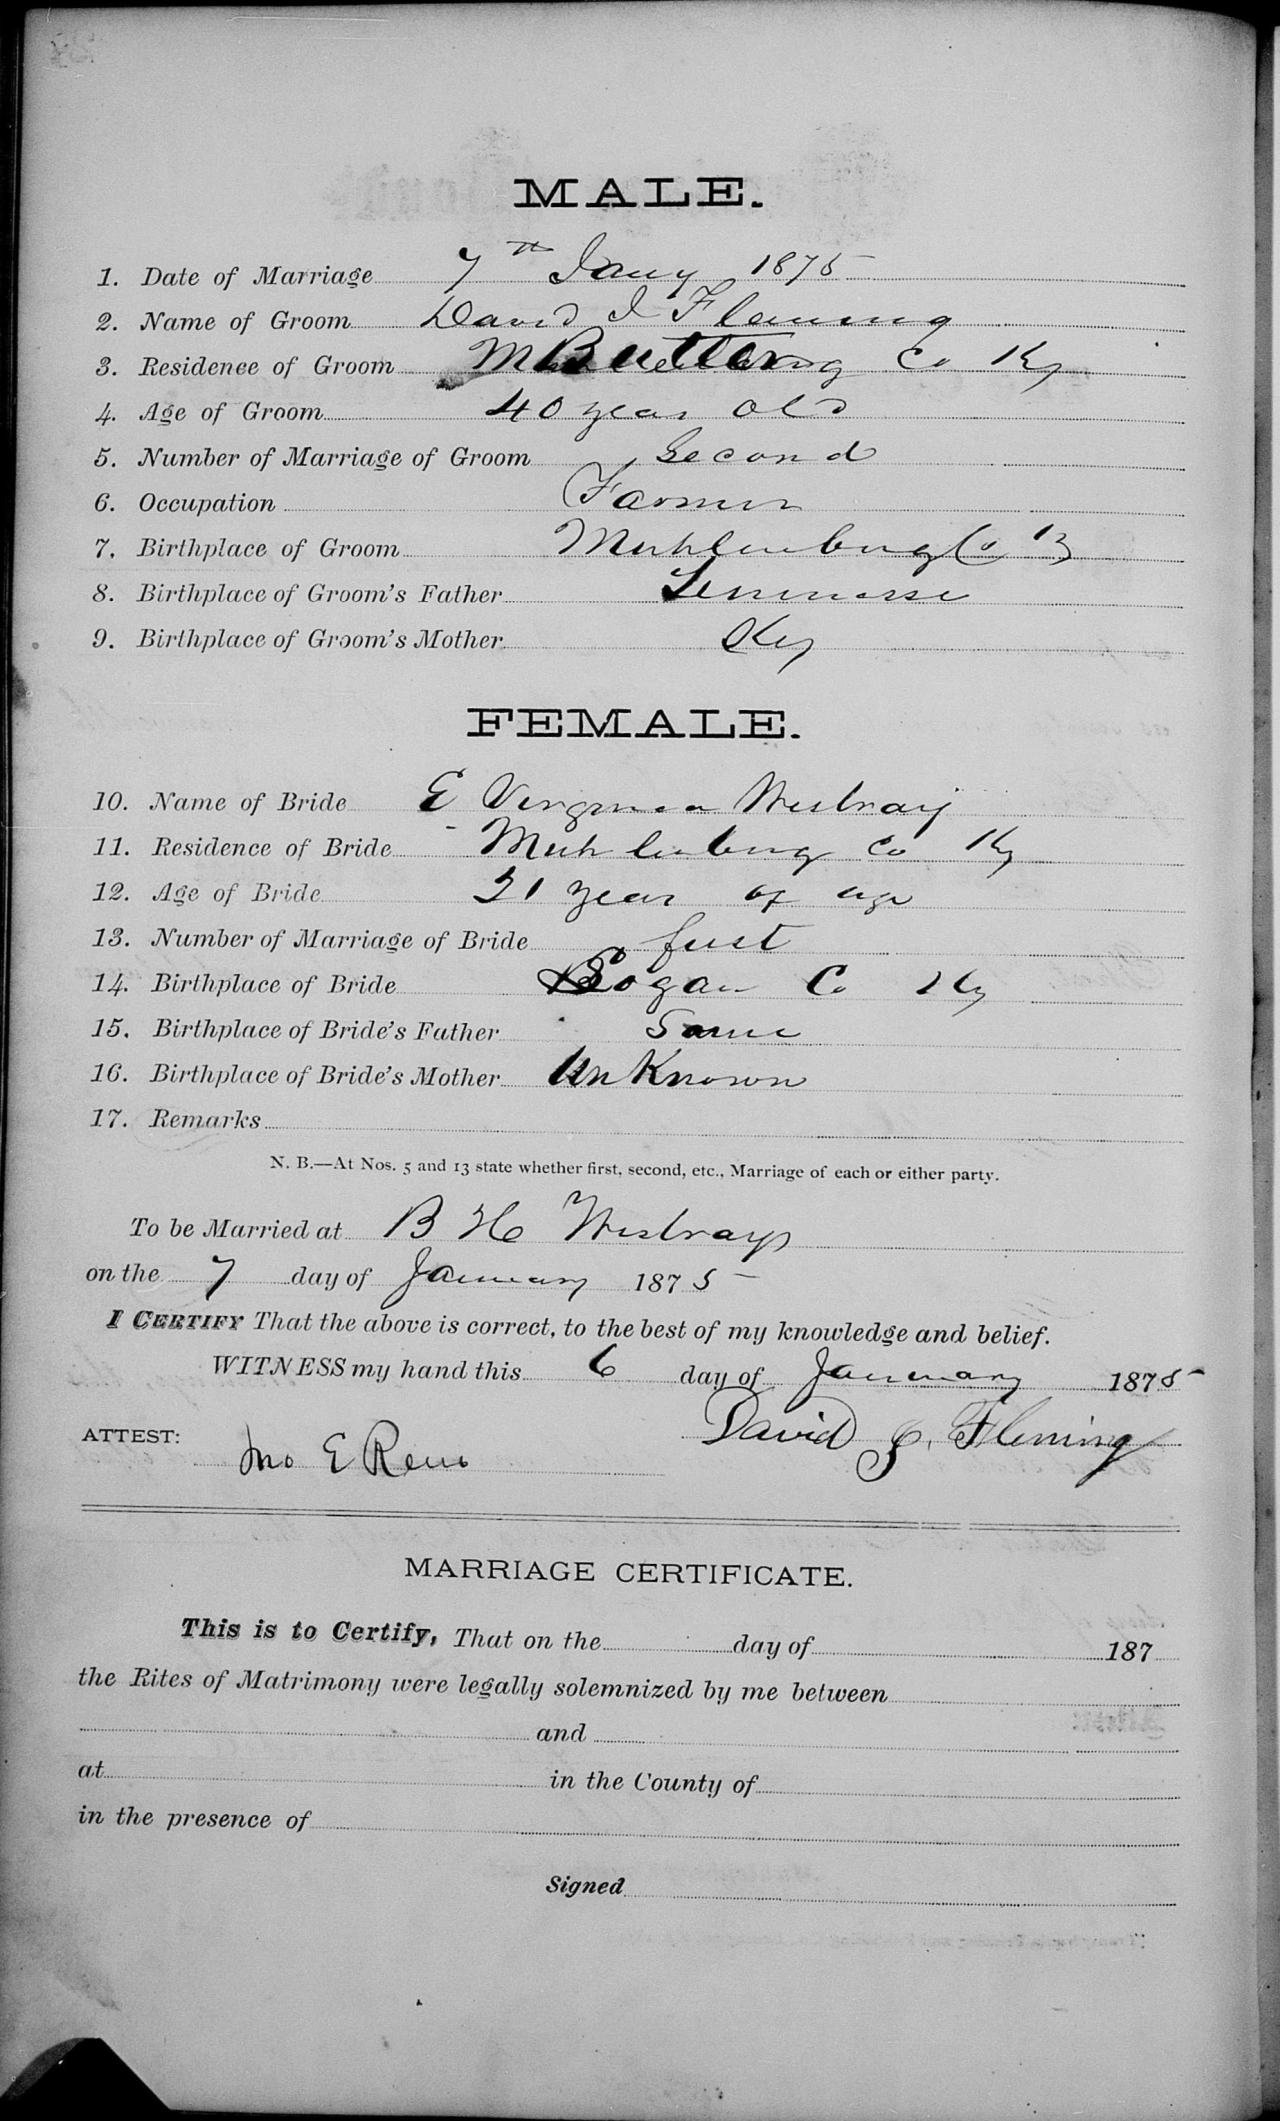 MALE.
1. Date of Marriage 7th Jany 1875
2. Name of Groom David J Fleming
3. Residence of Groom Butler Co Ky
4. Age of Groom 40 year old
5. Number of Marriage of Groom Second
6. Occupation Farmer
7. Birthplace of Groom Muhlenburg Co
8. Birthplace of Groom's Father Tennessee
9. Birthplace of Groom's Mother Ky
FEMALE.
10. Name of Bride E Virginia Westray
11. Residence of Bride Muhlenburg Co Ky
12. Age of Bride 21 year of age
13. Number of Marriage of Bride first
14. Birthplace of Bride Logan Co Ky
15. Birthplace of Bride's Father Same
16. Birthplace of Bride's Mother UnKnown
17. Remarks
N. B.—At Nos. 5 and 13 state whether first, second, etc., Marriage of each or either party.
To be Married at B H Westrays
on the 7 day of January 1875
I CERTIFY That the above is correct, to the best of my knowledge and belief.
WITNESS my hand this 6 day of January 1875
David J. Fleming
ATTEST: Jno E Reno
MARRIAGE CERTIFICATE.
This is to Certify, That on the day of 187
the Rites of Matrimony were legally solemnized by me between
and
at in the County of
in the presence of
Signed